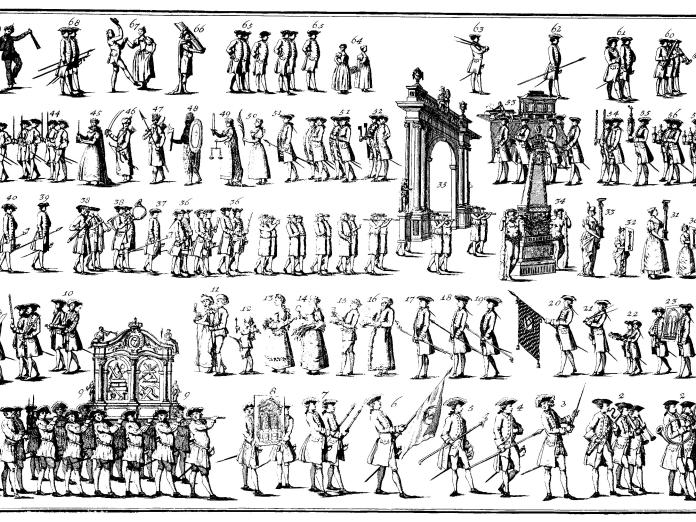 68 67 66 65 65 64 63 62 61 60
44 45 46 47 48 49 50 51 51 52 53 54 55 56
40 39 38 38 37 36 36 35 34 33 32 31
10 11 12 13 14 15 16 17 18 19 20 21 22 23
9 9 8 7 6 5 4 3 2 2